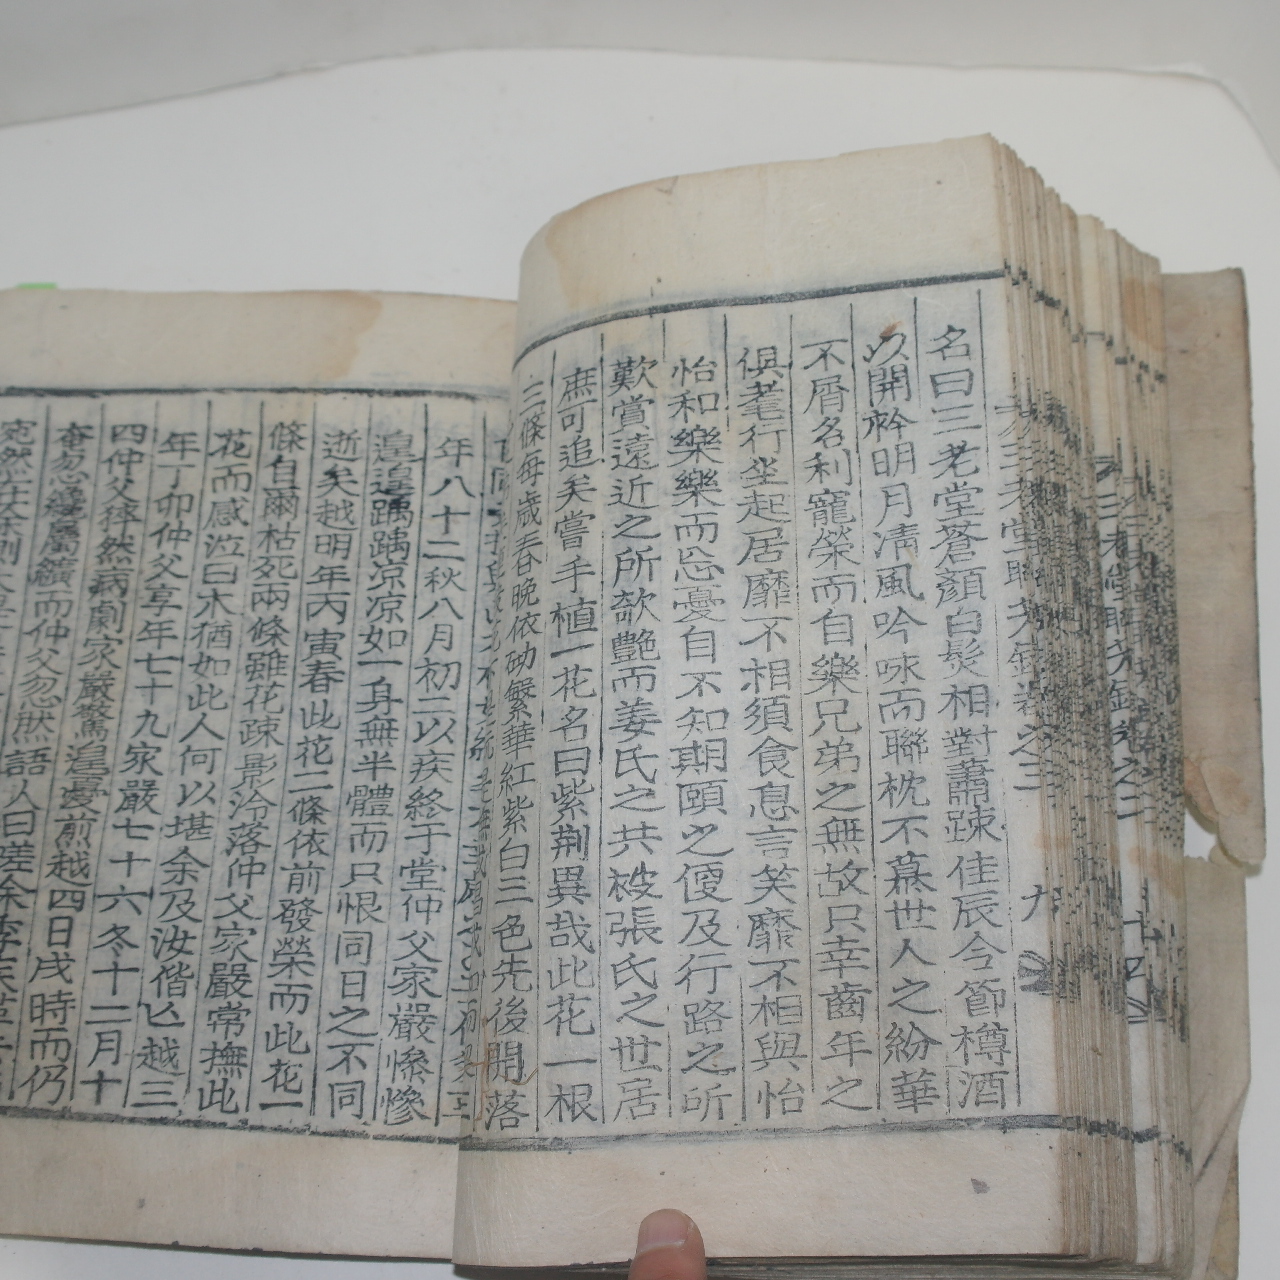 名曰三老堂蒼顏白髮相對蕭踈佳辰令節樽酒
以開衿明月淸風吟咏而聯枕不慕世人之紛華
不屑名利寵榮而自樂兄弟之無故只幸齒年之
俱耄行坐起居靡不相須食息言笑靡不相與怡
怡和樂樂而忘憂自不知期頤之便及行路之所
歎賞遠近之所欲艶而姜氏之共被張氏之世居
庶可追矣嘗手植一花名曰紫荆異哉此花一根
三條每歲春晩依砌繁華紅紫白三色先後開落
年八十二秋八月初二以疾終于堂仲父家嚴慘慘
遑遑踽踽凉凉如一身無半體而只恨同日之不同
逝矣越明年丙寅春此花二條依前發榮而此花一
條自爾枯死兩條雖花疎影冷落仲父家嚴常撫此
花而感泣曰木猶如此人何以堪余及汝偕亾越三
年丁卯仲父享年七十九家嚴七十六冬十二月十
四仲父猝然病劇家嚴驚遑憂煎越四日戌時而仍
奄忽纊而仲父忽然語人曰嗟余季
三老堂聯芳錄卷之三
九
三老堂聯芳錄卷之二
十四